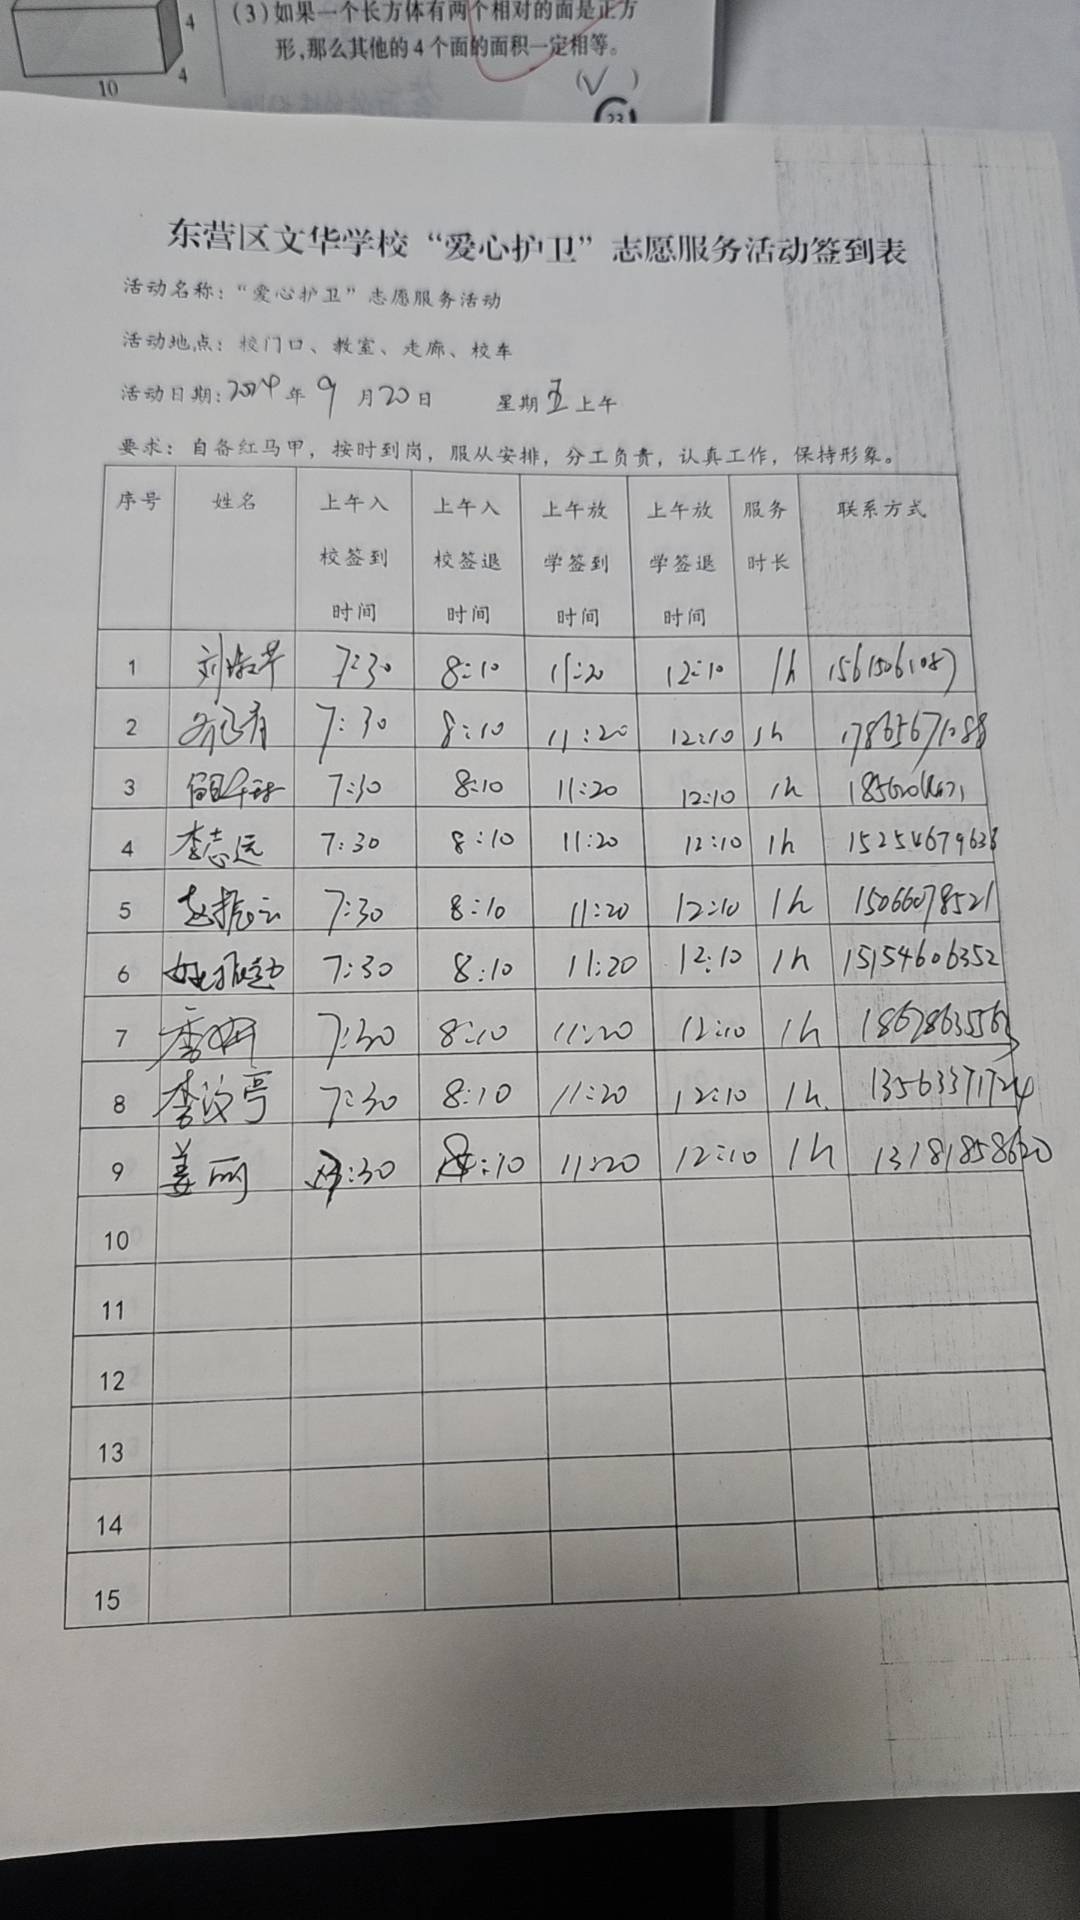 4
10
4
(3)如果一个长方体有两个相对的面是正方
形,那么其他的4个面的面积一定相等。
(√)
23
东营区文华学校“爱心护卫”志愿服务活动签到表
活动名称:“爱心护卫”志愿服务活动
活动地点:校门口、教室、走廊、校车
活动日期:2024年9月20日 星期五上午
要求:自备红马甲,按时到岗,服从安排,分工负责,认真工作,保持形象。
序号 姓名 上午入校签到时间 上午入校签退时间 上午放学签到时间 上午放学签退时间 服务时长 联系方式
1 7:30 8:10 11:20 12:10 1h 15615061087
2 7:30 8:10 11:20 12:10 1h 17865671088
3 7:30 8:10 11:20 12:10 1h
4 李志远 7:30 8:10 11:20 12:10 1h 15254679633
5 赵振云 7:30 8:10 11:20 12:10 1h 15066078521
6 7:30 8:10 11:20 12:10 1h 15154606352
7 7:30 8:10 11:20 12:10 1h 18678635563
8 李汶亭 7:30 8:10 11:20 12:10 1h. 13563371724
9 姜丽 7:30 8:10 11:20 12:10 1h 13181858620
10
11
12
13
14
15